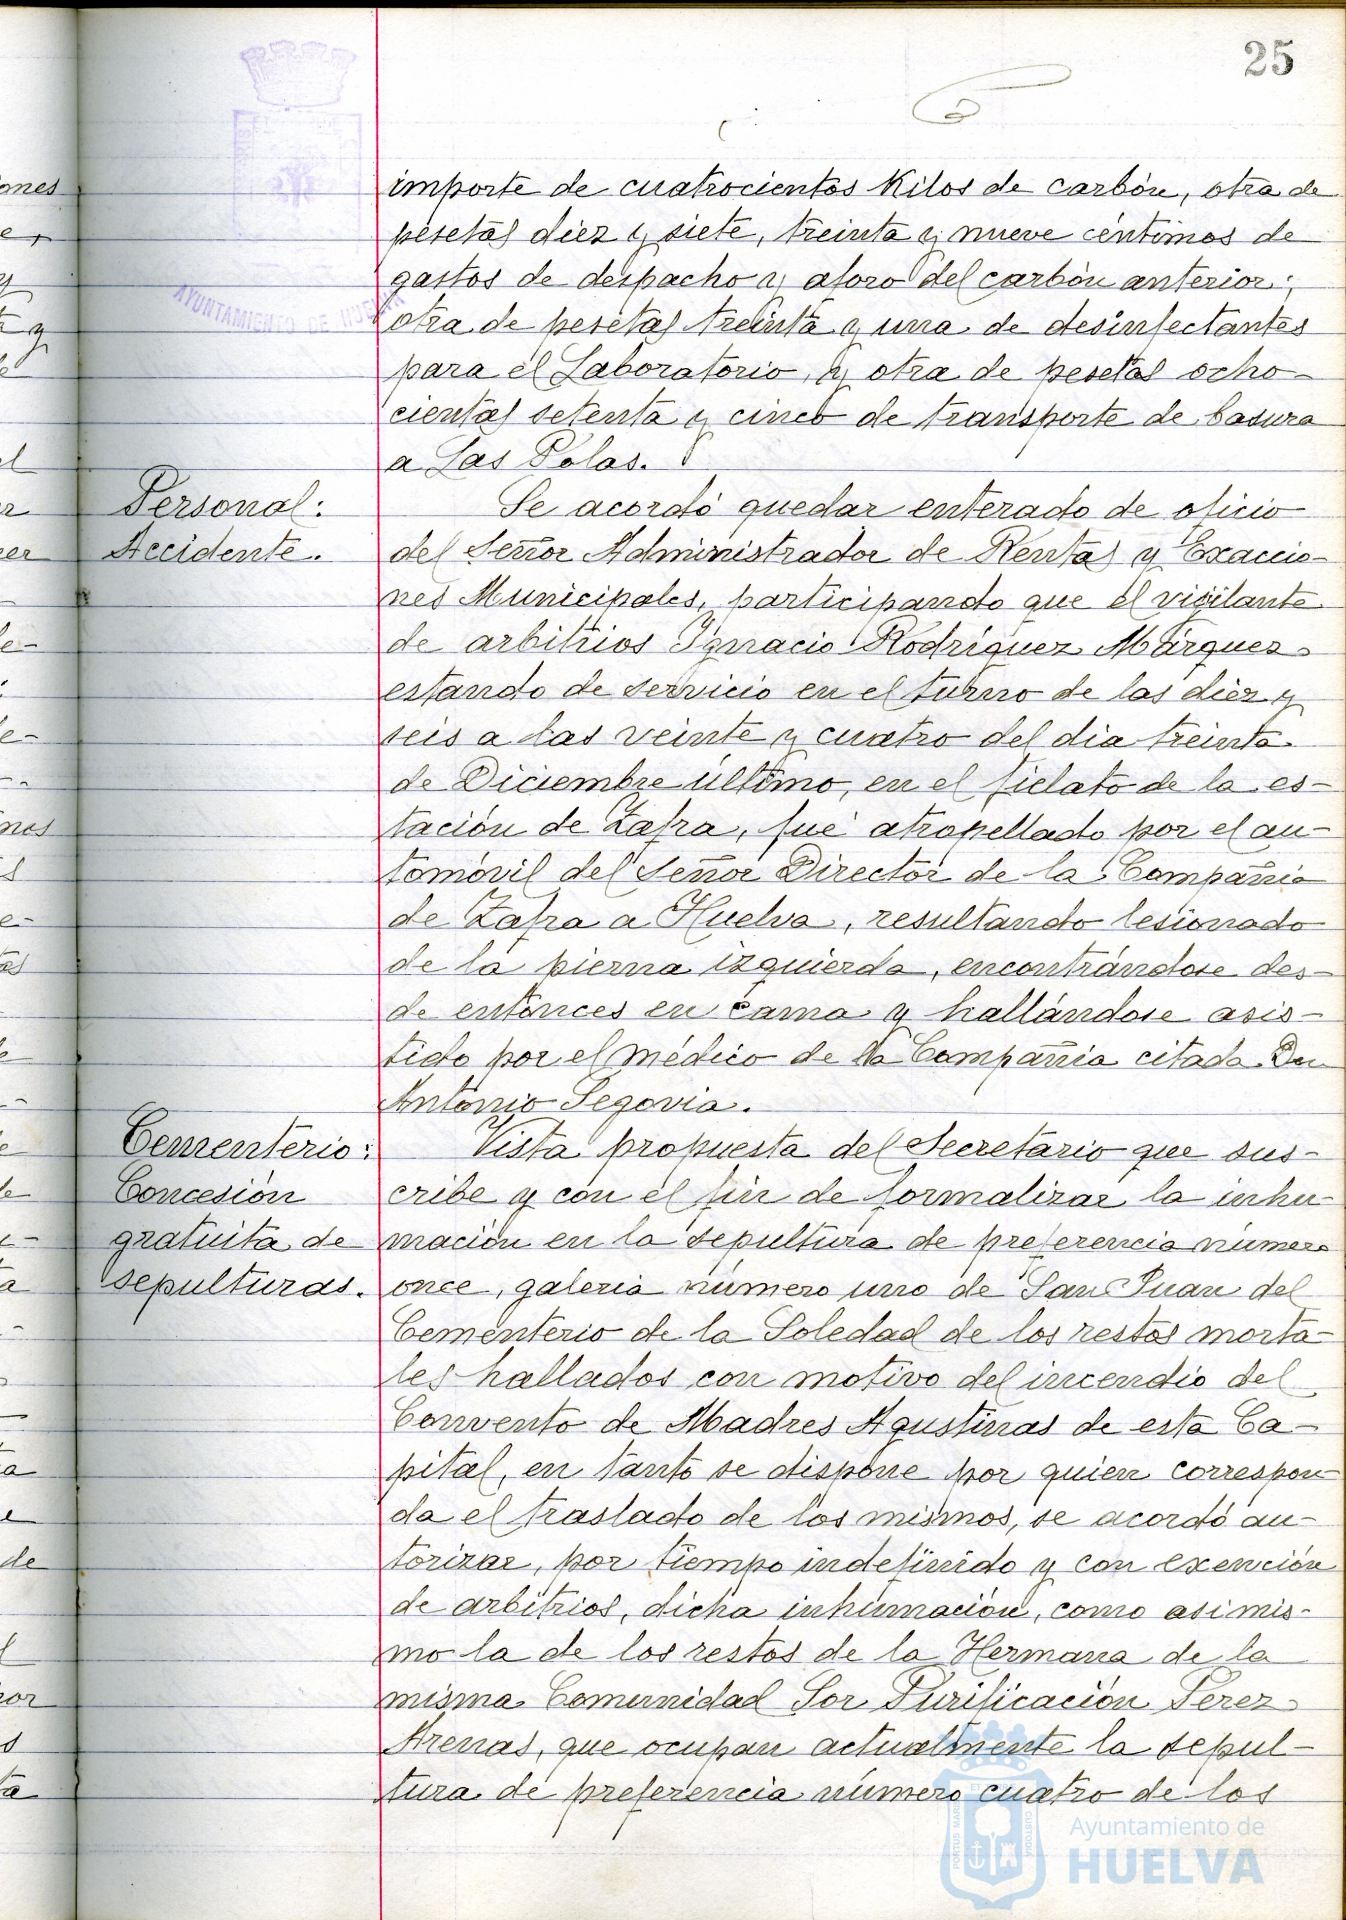 25
importe de cuatrocientos Kilos de carbón, otra de
pesetas diez y siete, treinta y nueve céntimos de
gastos de despacho y aforo del carbón anterior;
otra de pesetas treinta y una de desinfectantes
para el Laboratorio, y otra de pesetas ocho-
cientas setenta y cinco de transporte de basura
a Las Polas.
Personal:
Accidente.
Se acordó quedar enterado de oficio
del Señor Administrador de Rentas y Exaccio-
nes Municipales, participando que el vigilante
de arbitrios Ignacio Rodríguez Márquez
estando de servicio en el turno de las diez y
seis a las veinte y cuatro del dia treinta
de Diciembre último, en el fielato de la es-
tación de Zafra, fué atropellado por el au-
tomóvil del Señor Director de la Compañia
de Zafra a Huelva, resultando lesionado
de la pierna izquierda, encontrándose des-
de entonces en cama y hallándose asis-
tido por el médico de la Compañia citada Don
Antonio Segovia.
Cementerio:
Concesión
gratuita de
sepulturas.
Vista propuesta del Secretario que sus-
cribe y con el fin de formalizar la inhu-
mación en la sepultura de preferencia número
once, galeria número uno de San Juan del
Cementerio de la Soledad de los restos morta-
les hallados con motivo del incendio del
Convento de Madres Agustinas de esta Ca-
pital, en tanto se dispone por quien correspon-
da el traslado de los mismos, se acordó au-
torizar, por tiempo indefinido y con exención
de arbitrios, dicha inhumación, como asimis-
mo la de los restos de la Hermana de la
misma Comunidad Sor Purificación Perez
Arenas, que ocupan actualmente la sepul-
tura de preferencia número cuatro de los
AYUNTAMIENTO DE HUELVA
PORTUS MARIS
CUSTODIA
Ayuntamiento de
HUELVA